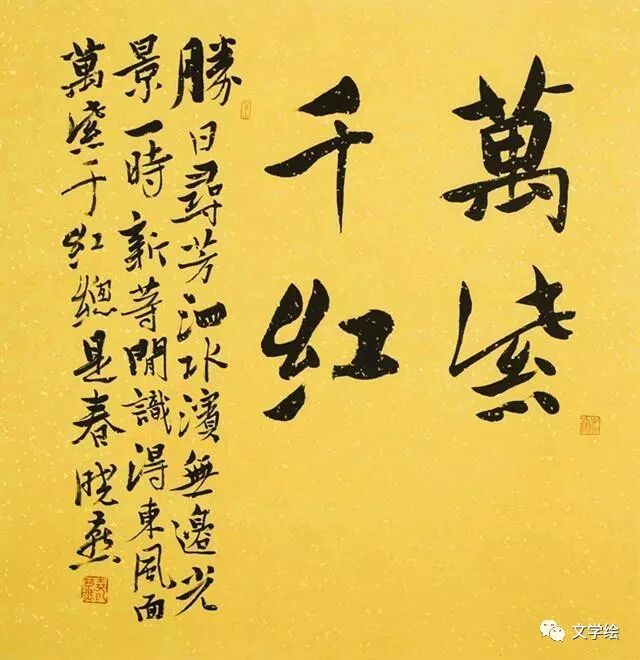 萬紫
千紅
勝日尋芳泗水濱無邊光
景一時新等閒識得東風面
萬紫千紅總是春曉燕
文学绘